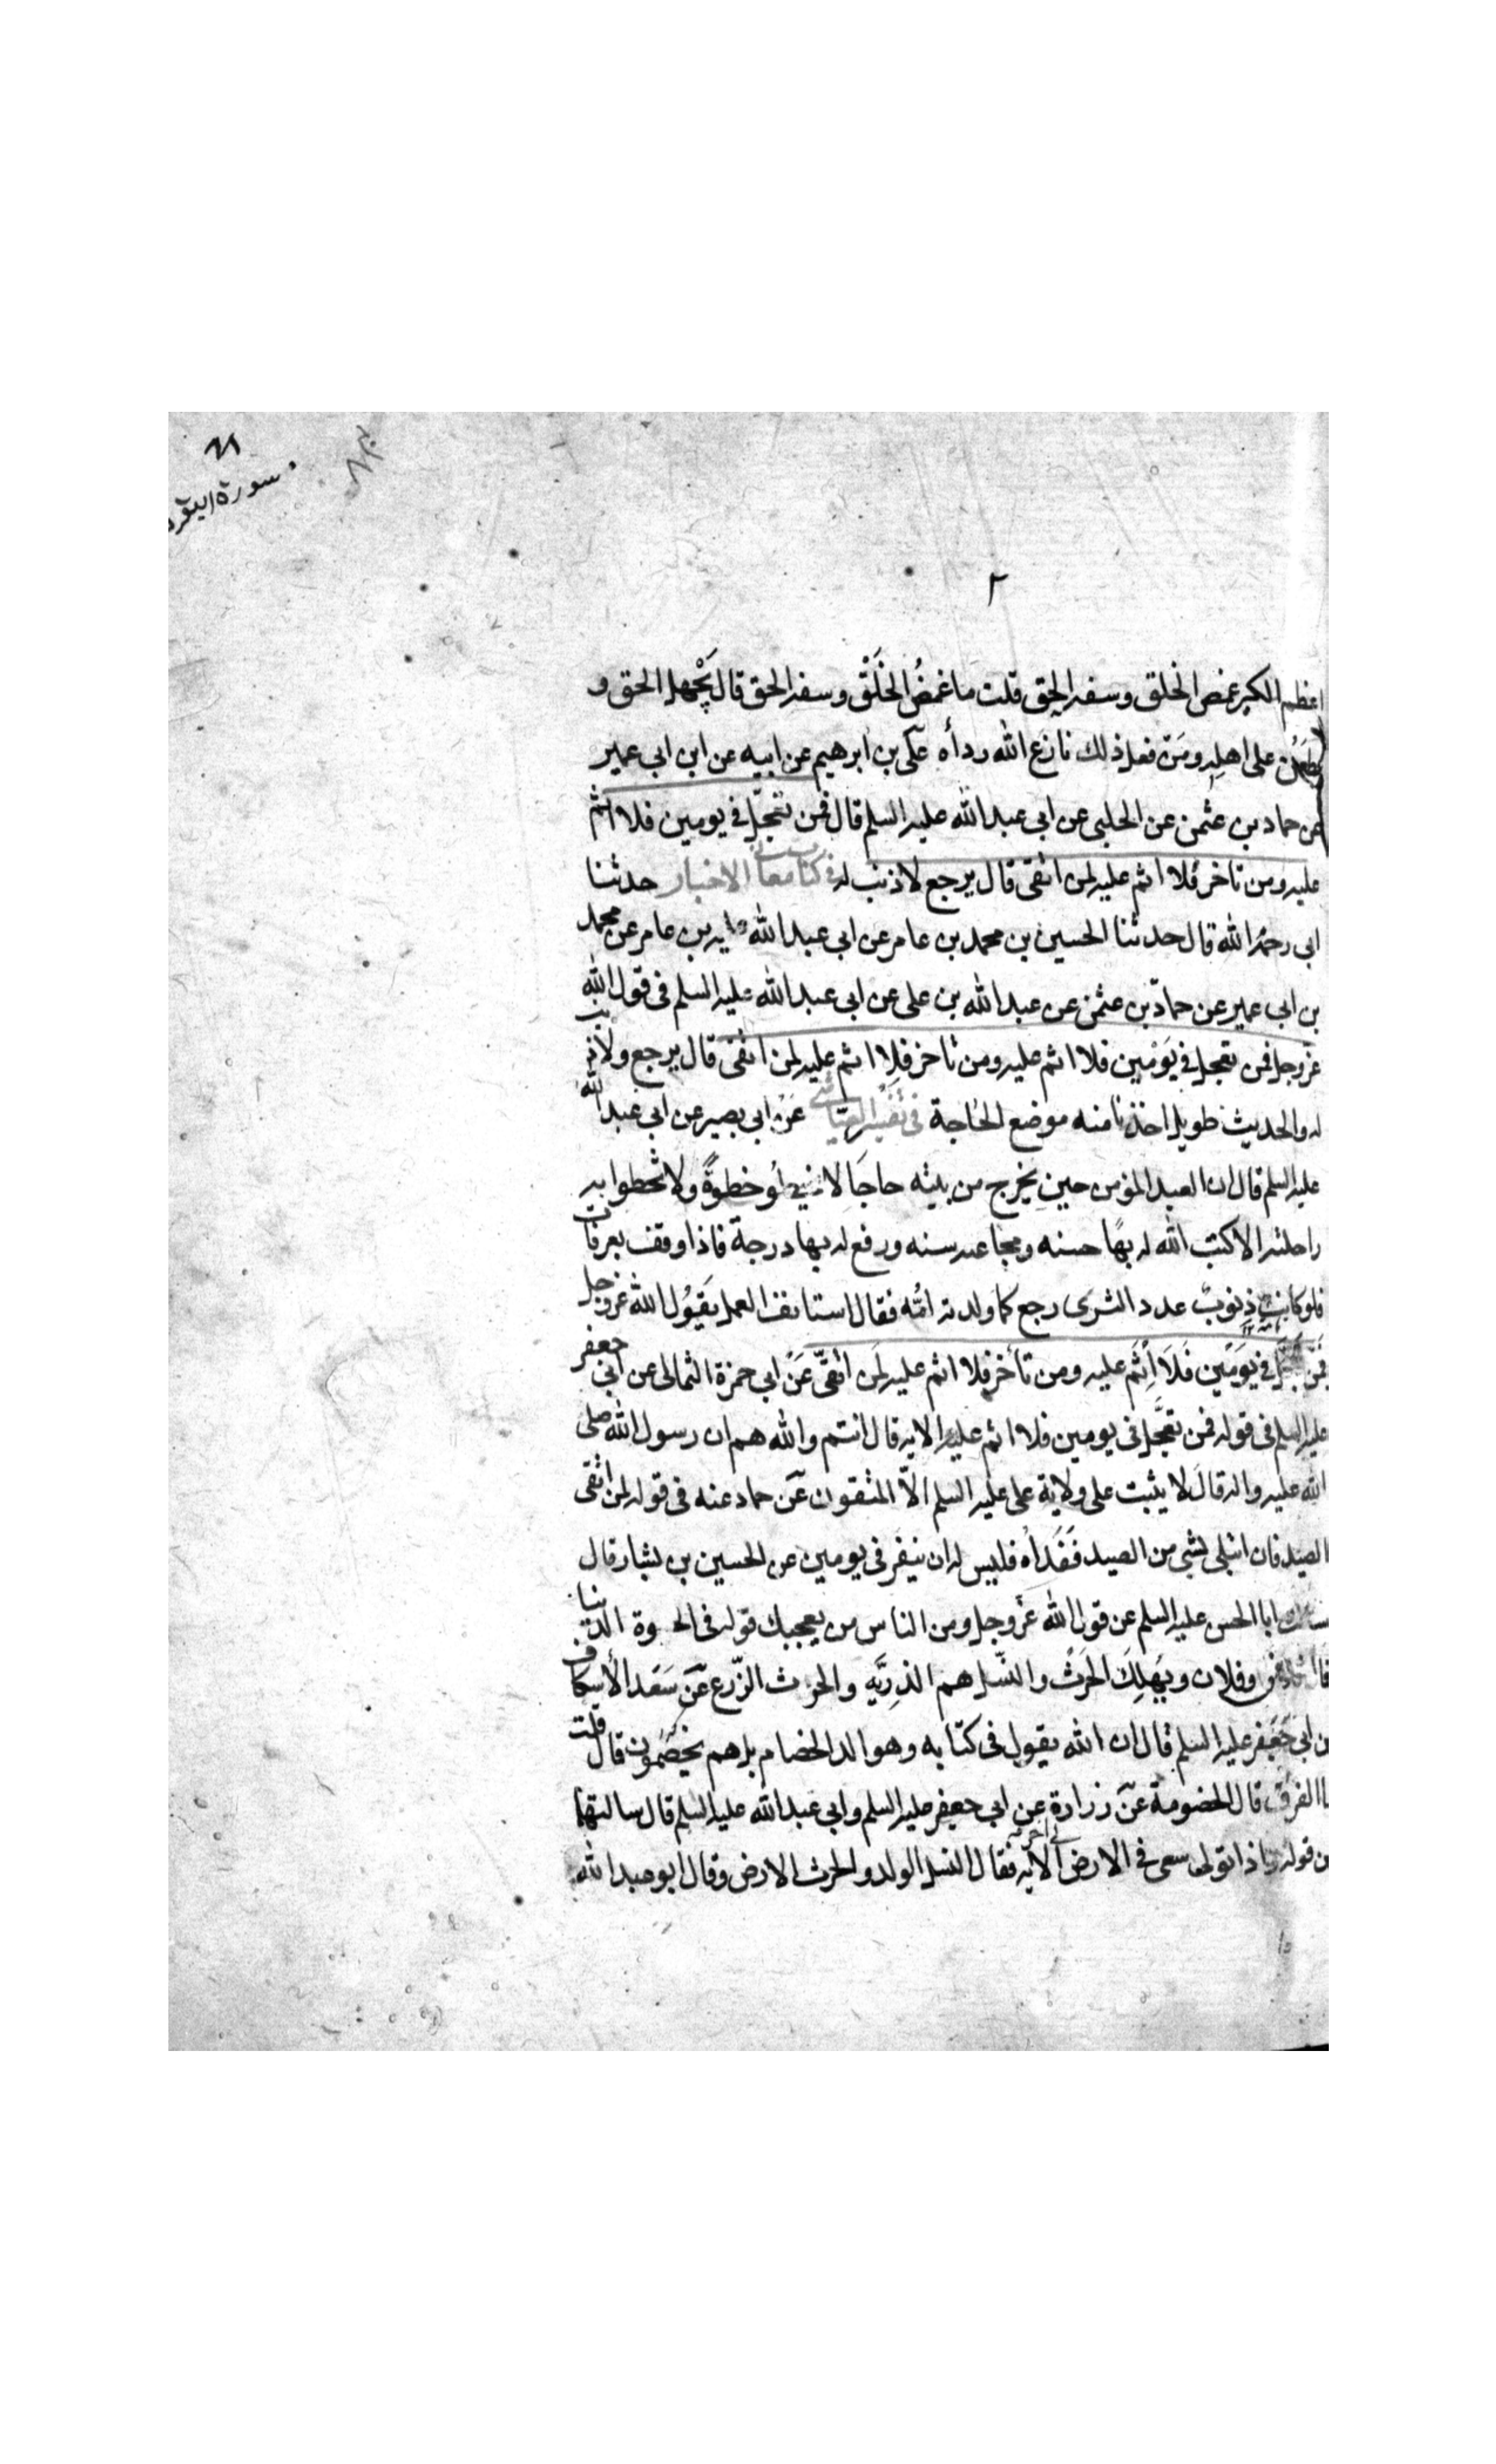 ٦٨
سورة البقره
٢
اعظم الكبر غمص الخلق وسفه الحق قلت ما غمصُ الخَلْق وسفه الحق قال يَجْهل الحق و
يطعن على اهله ومَن فعل ذلك نازع الله رداه علىّ بن ابرهيم عن ابيه عن ابن ابى عمير
عن حماد بن عثمن عن الحلبى عن ابى عبد الله عليه السلم قال فمن تعجّل فى يومين فلا اثم
عليه ومن تاخر فلا اثم عليه لمن اتقى قال يرجع لا ذنب له فى كتاب معانى الاخبار حدثنا
ابى رحمه الله قال حدثنا الحسين بن محمد بن عامر عن ابى عبد الله بن عامر عن محمد
بن ابى عمير عن حمادّ بن عثمن عن عبد الله بن على عن ابى عبد الله عليه السلم فى قول الله
عزوجل فمن تعجل فى يَوْمين فلا اثم عليه ومن تاخر فلا اثم عليه لمن اتقى قال يرجع ولا ذنب
له والحديث طويل اخذنا منه موضع الحاجة فى تفسير العيّاشى عَن ابى بصير عن ابى عبد الله
عليه السلم قال ان العبد المؤمن حين يخرج من بيته حاجَا لا يخطُو خطوةً ولا تخطوا به
راحلته الا كتب الله له بهَا حسنه ومحا عنه سنه ورفع له بها درجة فاذا وقف بعرفات
فلو كانت ذنوبه عدد الثرى رجع كما ولدته امُّه فقال استانف العمل يَقُول الله عزوجل
فَمَن تعجل فى يَومَين فَلَا اِثَم عليه ومن تأخر فلا اثم عليه لمَن اتقىّ عَن ابى حمزة الثمالى عن ابى جعفر
عليه السلم فى قوله فمن تعجَّل فى يومين فلا اثم عليه الايه قال انتم والله هم ان رسول الله صلى
الله عليه واله قال لا يثبت على ولاية على عليه السلم الاّ المتقون عَن حماد عنه فى قوله لمن اتقى
الصيَد فان ابتلى بشى من الصيد فَفَداه فليس له ان ينفر فى يومين عن الحسين بن بشار قال
سالت ابا الحسن عليه السلم عن قول الله عزوجل ومن الناس من يعجبك قوله فى الحيوة الدنيا
قال فلان وفلان ويهلِكَ الحَرثَ والنّسل هم الذريّه والحرث الزّرع عَن سَعَد الأسكاف
عن ابى جَعفر عليه السلم قال ان الله يقول فى كتابه وهو الد الخصام بل هم يختصَمُون قال قلت
ما الفرق قال الخصومة عَن زرارة عن ابى جعفر عليه السلم وابى عبد الله عليه السلم قال سالتهما
عن قوله واذا تولى سعى فى الارض الى اخر الايه فقال النسل الولد والحرث الارض وقال ابو عبد الله